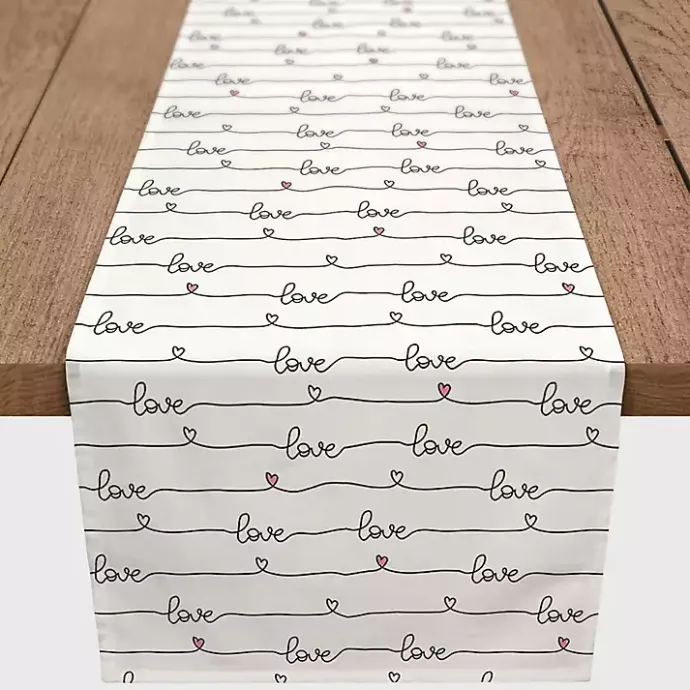 love love
love love
love love
love love
love love
love love
love love
love love
love love
love love
love love
love love
love love
love love
love love
love love
love love
love love
love love
love love
love love
love love
love love
love love
love love